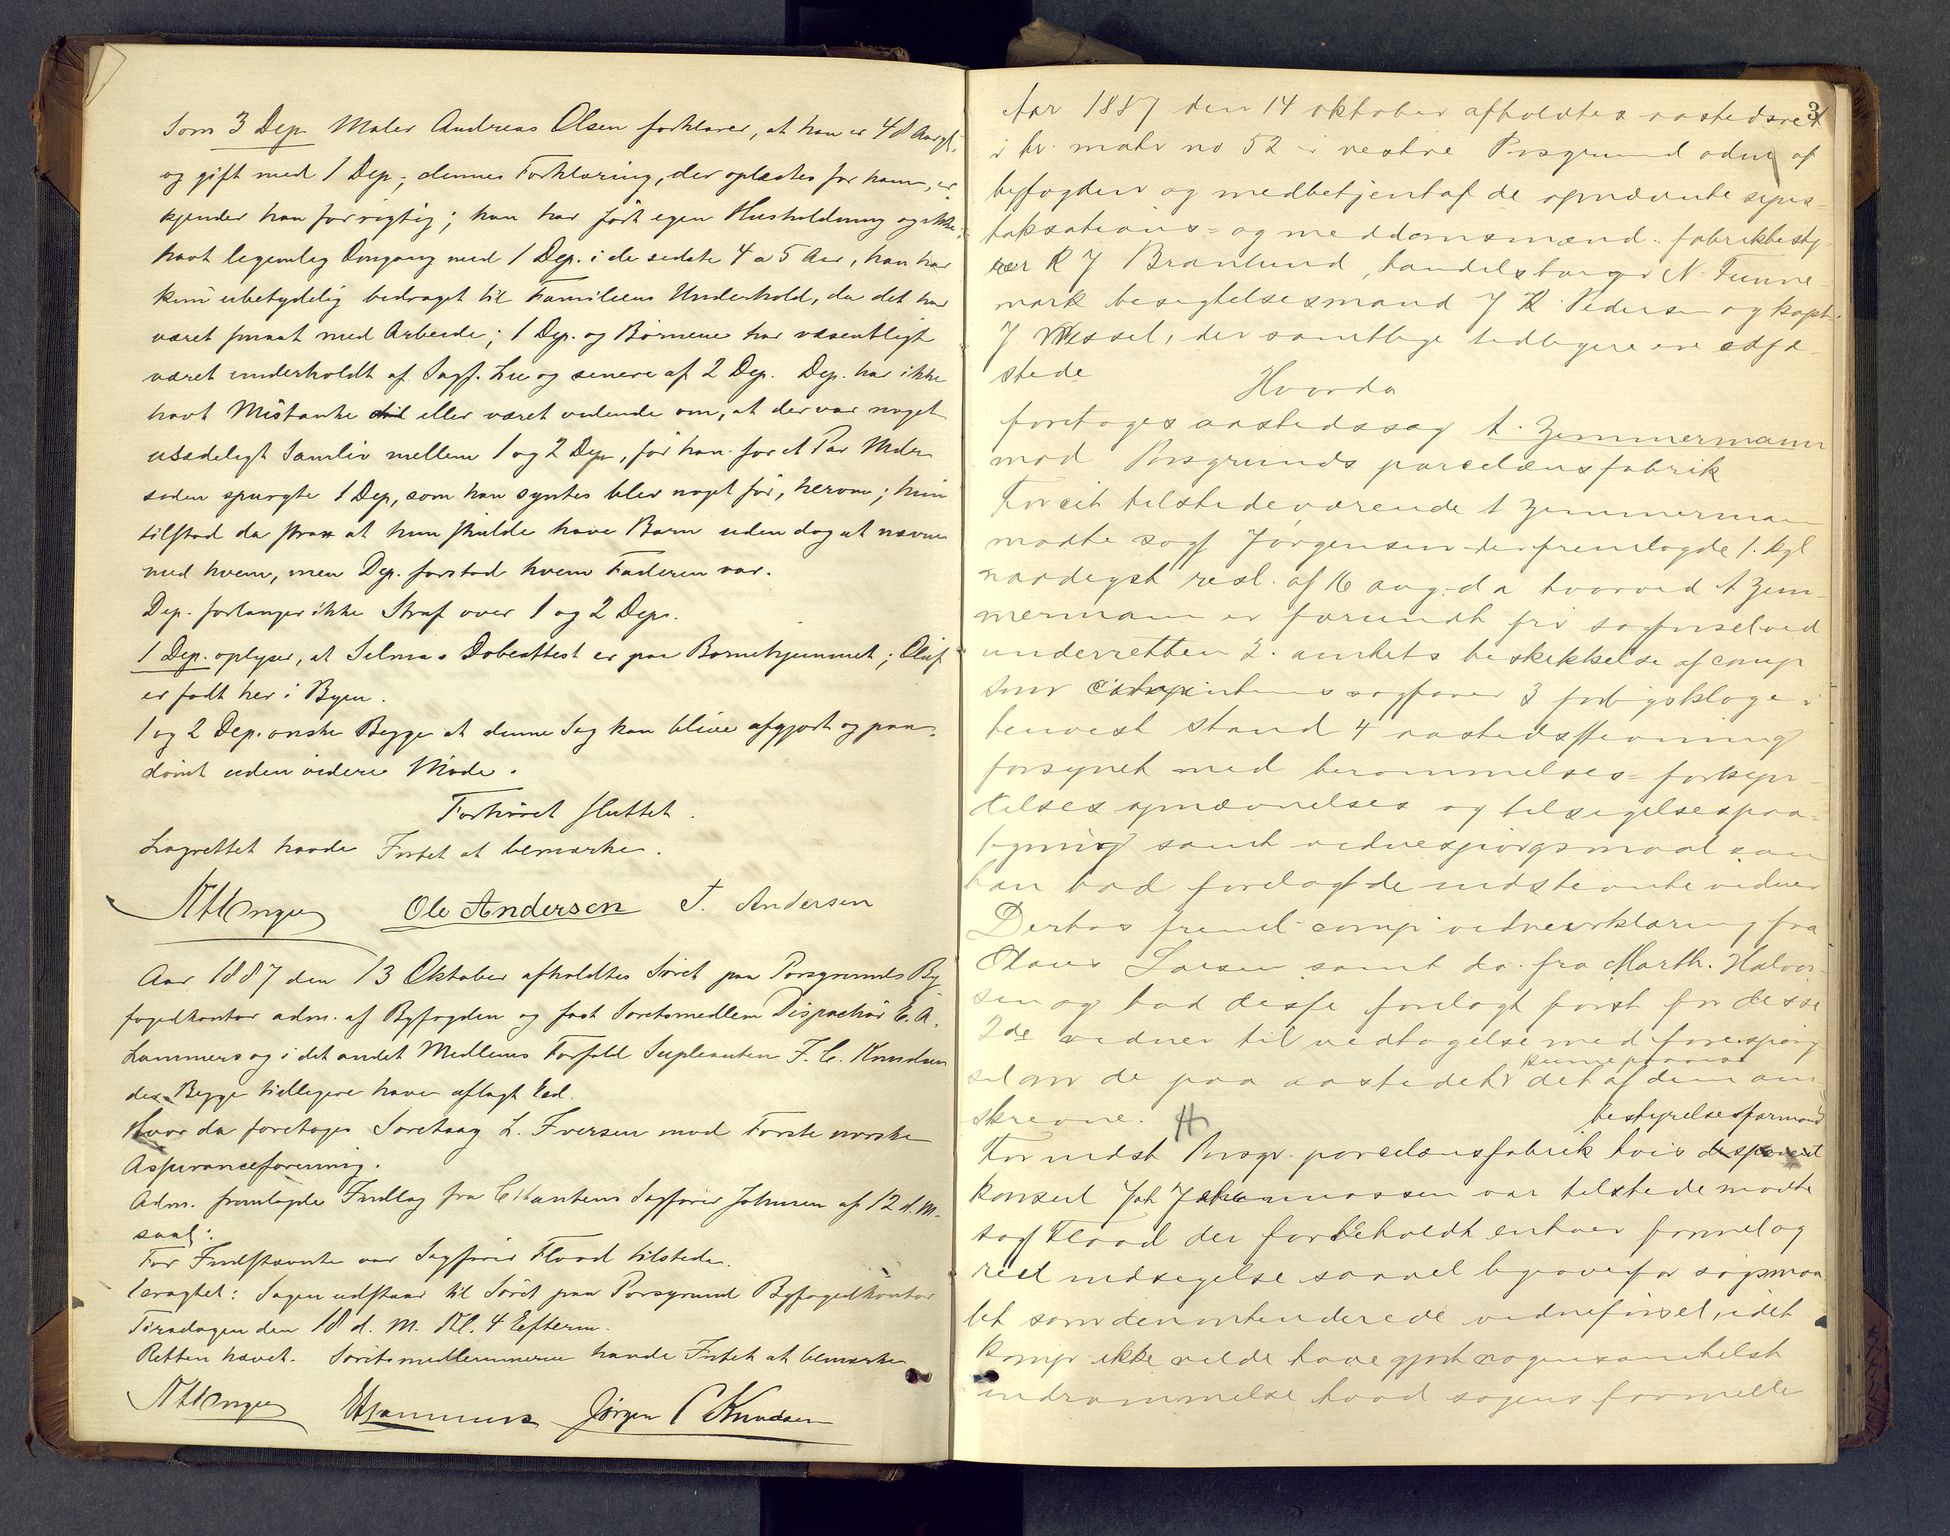 Som 3 Dep Maler Andreas Olsen forklarer, at han er 48 Aar gl.
og gift med 1 Dep; dennes Forklaring, der oplæstes for ham, er
kjender han for rigtig; han har ført egen Husholdning og ikke
havt legemlig Omgang med 1 Dep. i de sidste 4 a 5 Aar, han har
kun ubetydelig bedraget til Familiens Underhold, da det har
været smaat med Arbeide; 1 Dep. og Børnene har væsentligt
været underholdt af Sagf. Lie og senere af 2 Dep. Dep. har ikke
havt Mistanke eller været vidende om, at der var noget
usædeligt Samliv mellem 1 og 2 Dep, før han for et Par Mdr
siden spurgte 1 Dep, som han syntes blev noget før, herom; hun
tilstod da strax at hun skulde have Barn uden dog at nævne
med hvem, men Dep. forstod hvem Faderen var.
Dep. forlanger ikke Straf over 1 og 2 Dep.
1 Dep. oplyser, at Selmas Dobeattest er paa Børnehjemmet; Oluf
er født her i Byen.
1 og 2 Dep. ønske Begge at denne Sag kan blive afgjort og paa-
dømt uden videre Møde.
Forhøret sluttet.
Lagrettet havde Intet at bemærke.
Ole Andersen T. Andersen
Aar 1887 den 13 Oktober afholdtes Søret paa Porsgrunds By
fogedkontor adm. af Byfogden og fast Søretsmedlem Dispachør E. A.
Lammers og i det andet Medlems Forfald Supleanten J. C. Knudsen
der Begge tidligere have aflagt Ed.
Hvor da foretages Søretssag L. Iversen mod Første norske
Assuranceforening.
Adm. fremlagde Indlæg fra Citantens Sagfører Johnsen af 12 d. M.
saal:
For Indstævnte var Sagfører Flood tilstede.
Eragtet: Sagen udstaar til Søret paa Porsgrund Byfogedkontor
Tirsdagen den 18 d. M. Kl. 4 Efterm.
Retten hævet. Søretsmedlemmerne havde Intet at bemærke
Lammers Jørgen C Knudsen
3
Aar 1887 den 14 oktober afholdtes aastedsret
i br. matr no 52 i vestre Porsgrund adm af
byfogden og medbetjent af de opnævnte syns-
taksations- og meddomsmænd: fabrikbesty-
rer R J Branlund, handelsborger N. Funne-
mark besigtelsesmand J R Pedersen og kapt.
J Wessel, der samtlige tidligere ere edfæ-
stede
Hvorda
foretoges aastedssag A. Zimmermann
mod Porsgrunds porcelænsfabrik
For cit tilstedeværende A Zimmerman
mødte sagf Jørgensen der fremlagde 1. kgl
naadigst resl. af 16 aug. d a hvorved A Zim-
mermann er forundt fri sagførsel ved
underretten 2. amtets beskikkelse af comp
som citantens sagfører 3 forligsklage i
beviist stand 4 aastedsstevning
forsynet med berammelses- forkyn-
delses opnævnelses og tilsigelsespaa-
tegning samt vidnespørgsmaal som
han bad forelagt de indstevnte vidner
Derhos freml comp vidneerklæring fra
Olaus Larsen samt do. fra Marth. Halvor-
sen og bad disse forelagt først for disse
2de vidner til vedtagelse med forespørg
sel om de paa aastedet kunne paavise det af dem om-
skrevne. #
For indst Porsgr. porcelænsfabrik hvis bestyrelsesformand
konsul Joh Johannessen var tilstede mødte
sagf Flood der forbeholdt enhver formel og
reel indsigelse saavel ligeoverfor søgsmaa
let som den intenderede vidneførsel, idet
komp ikke vilde have gjort nogensomhelst
indrømmelse hvad sagens formelle